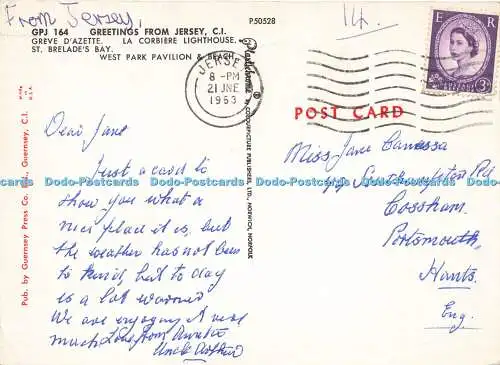 From Jersey,
P.50528
14.
GPJ 164 GREETINGS FROM JERSEY, C.I.
GREVE D'AZETTE. LA CORBIÈRE LIGHTHOUSE.
ST. BRELADE'S BAY.
WEST PARK PAVILION & BEACH
JERSEY
8 - PM
21 JNE
1963
E R
3D
POST CARD
Dear Jane
Just a card to
show you what a
nice place it is, but
the weather has not been
to kind, but to day
is a lot warmer
We are enjoying it very
much Love from Auntie
Uncle Arthur
Miss Jane
Southampton Rd
Cossham.
Portsmouth,
Hants.
Eng.
Pub. by Guernsey Press Co. Guernsey, C.I.
Plastichrome ®
BY COLOURPICTURE PUBLISHERS, LTD., NORWICH, NORFOLK
Dodo-Postcards Dodo-Postcards Dodo-Postcards Dodo-Postcards Dodo-Postcards